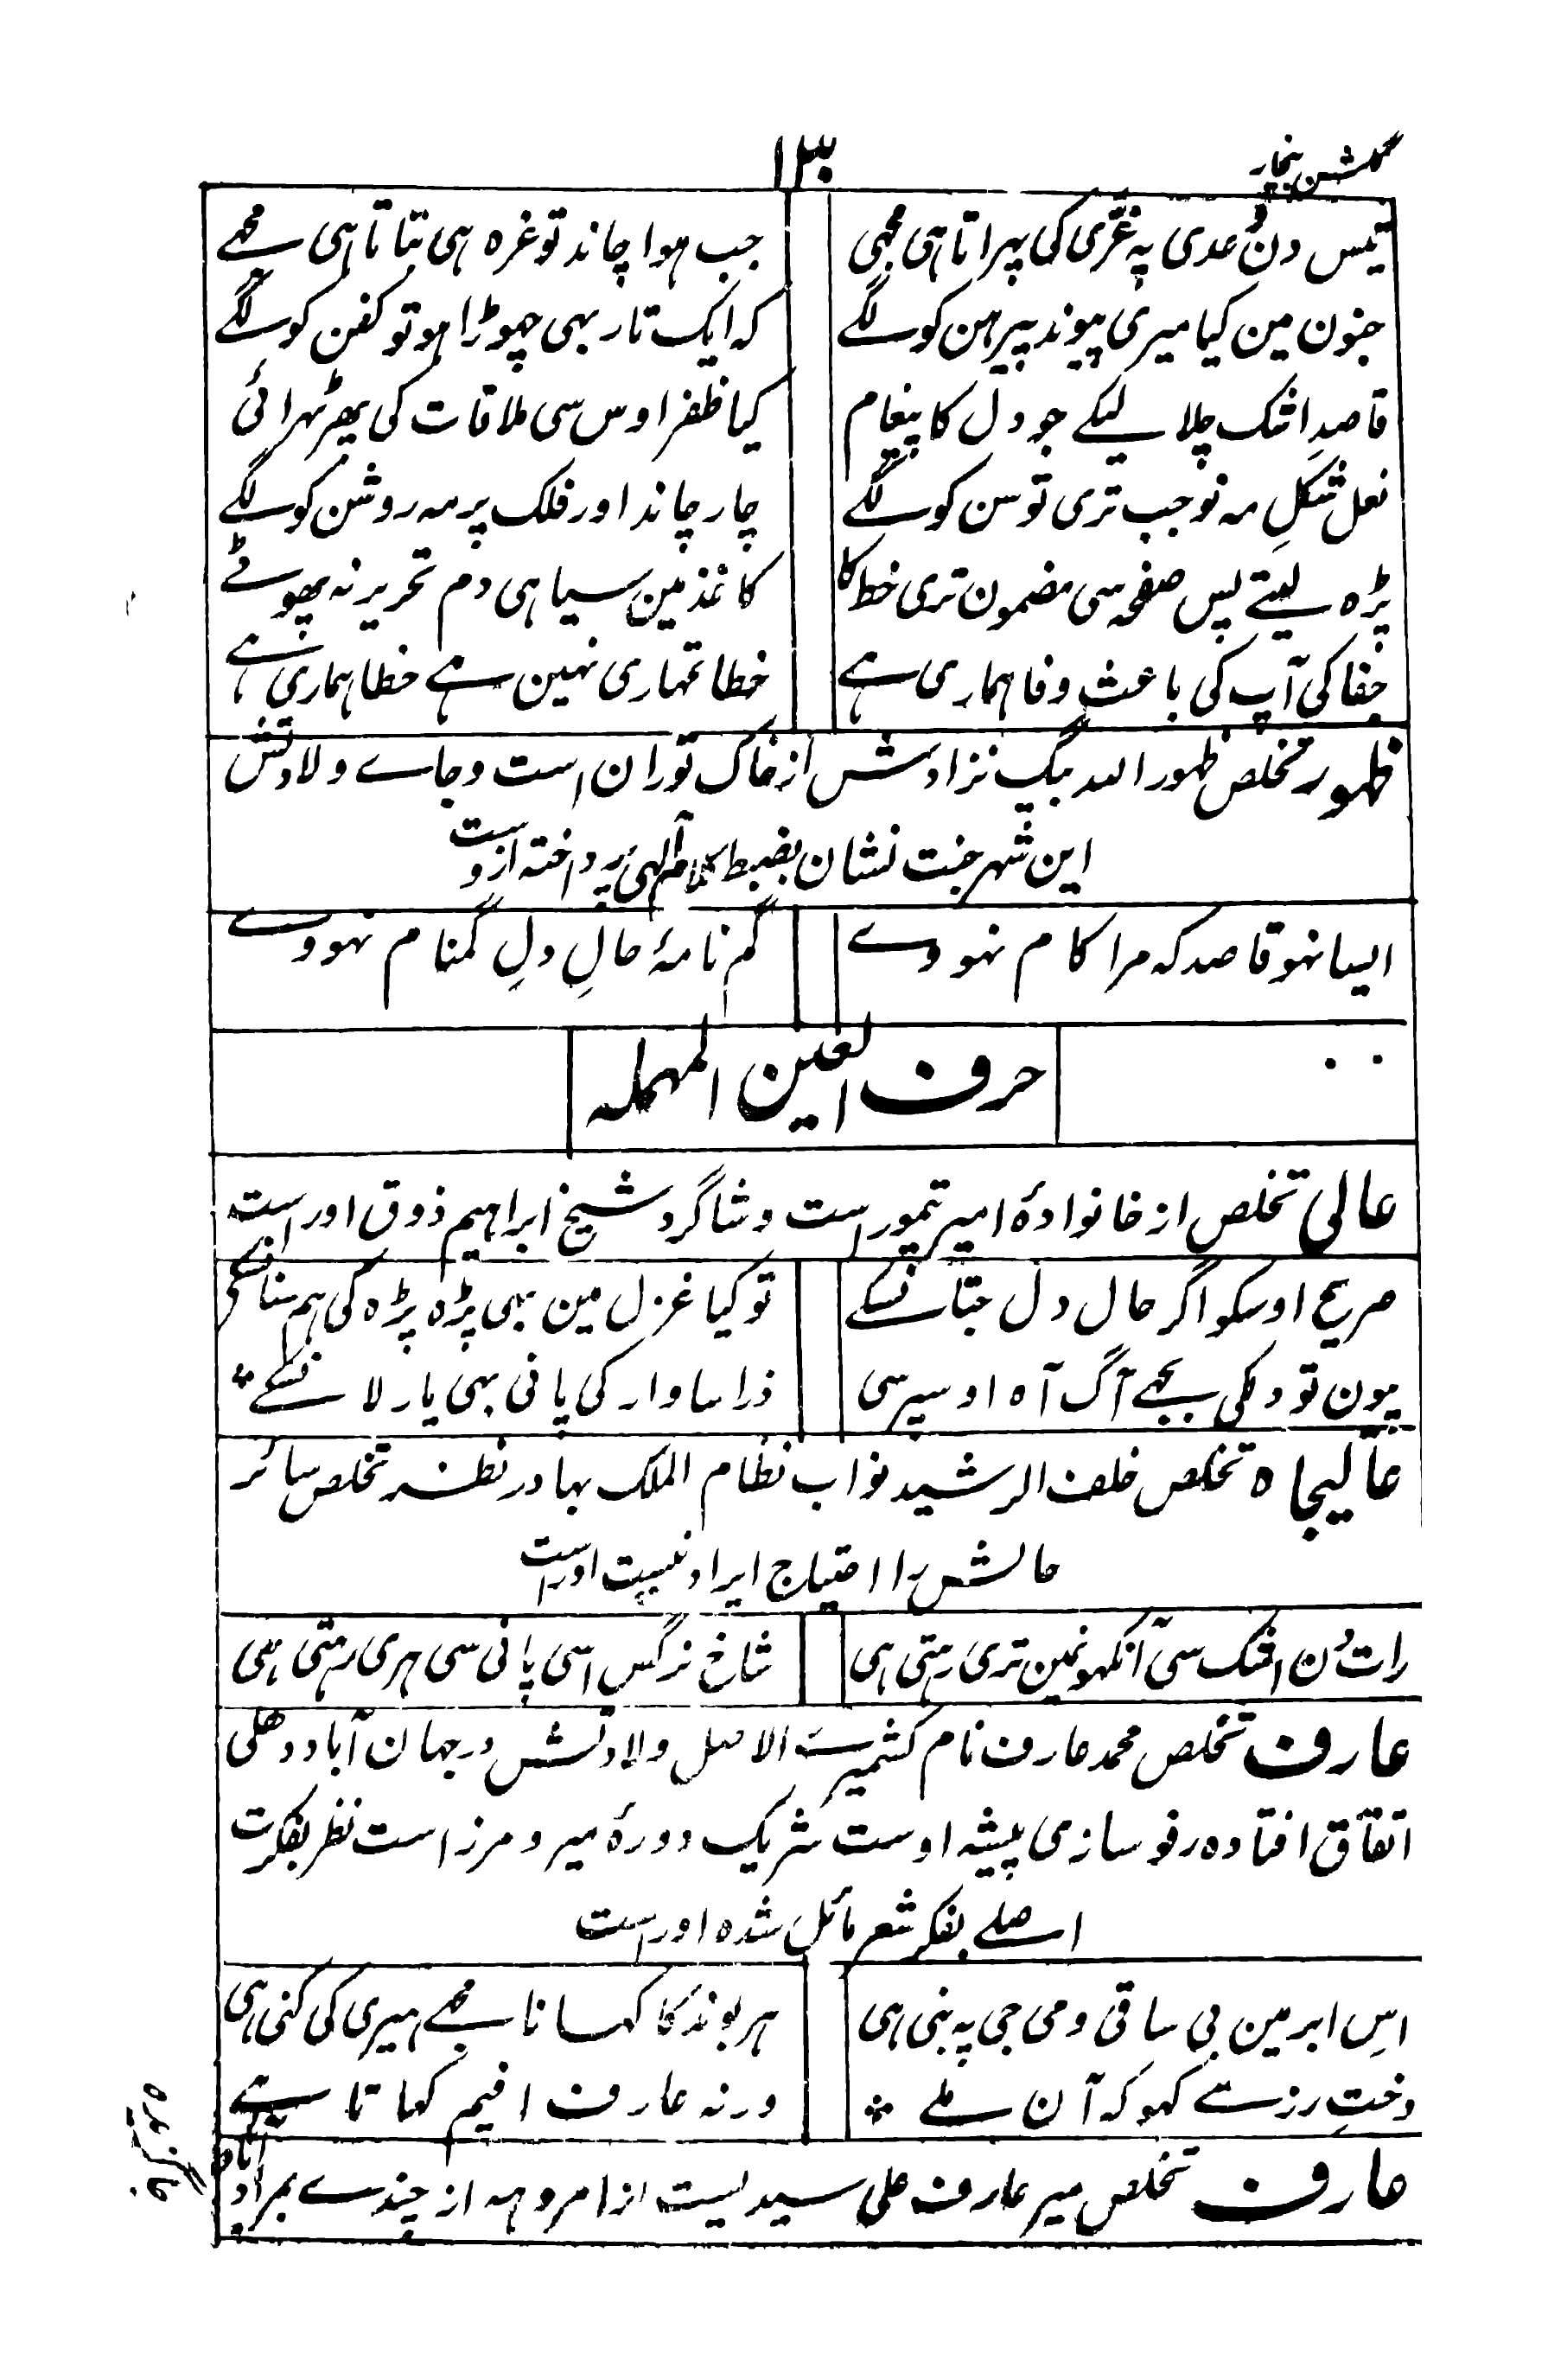 گلشن بیخار
۱۳۰
تیس دن وعدی پہ غرّی کی پہراتا ہی مجہی جب ہوا چاند تو غرہ ہی بتاتا ہی مجھے
جنون مین کیا میری پیوند پیرہن کو لگے کہ ایک تار بہی چہوڑا ہو تو کفن کو لگے
قاصدِ اشک چلا لیکے جو دل کا پیغام کیا ظفر اوس سی ملاقات کی پھر ٹہرائی
نعل شکلِ مہ نو جب تری توسن کو لگے چار چاند اور فلک پر مہ روشن کو لگے
پڑہ لیتے پس صفحہ سی مضمون تری خط کا کاغذ مین سیاہی دم تحریر نہ پھوٹے
جفا کی آپ کی باعث وفا ہماری ہے خطا تمہاری نہین ہے خطا ہماری ہے
ظہور تخلص ظہور اللہ بیگ نژادش از خاک توران است و جاے ولادتش
این شہر جنت نشان بضبط کلام الٰہی پرداختہ ازوست
ایسا نہو قاصد کہ مرا کام نہووے گم نامۂ حالِ دلِ گمنام نہووے
حرف العین المہملہ
عالی تخلص از خانوادۂ امیر تیمور است و شاگرد شیخ ابراہیم ذوق اوراست
صریح اوسکو اگر حال دل جتا نسکے تو کیا غزل مین بہی پڑہ پڑہ کی ہم سنا نسکے
یون تو دلکی بجھے آگ آہ اوسپر سی ذرا سا وار کی پانی بہی یار لا نسکے
عالیجاہ تخلص خلف الرشید نواب نظام الملک بہادر نظام تخلص سائر
حالش را احتیاج ایراد نیست اوراست
رات دن اشک سی آنکہونمین تری رہتی ہی شاخ نرگس اسی پانی سی ہری رہتی ہی
عارف تخلص محمد عارف نام کشمیرے الاصل ولادتش در جہان آباد دہلی
اتفاق افتادہ رفو سازی پیشہ اوست شریک دورۂ میر و مرزا است نظر بفکرت
اصلے بفکر شعر مائل شدہ اوراست
اس ابر مین بی ساقی و می جی پہ بنی ہی ہر بوند کا کہانا مجھے ہیری کی کنی ہی
دختِ رز سے کہو کہ آن ملے ورنہ عارف افیم کہاتا ہے
عارف تخلص میر عارف علی سیدیست از امروہہ از چندے بمراد آباد